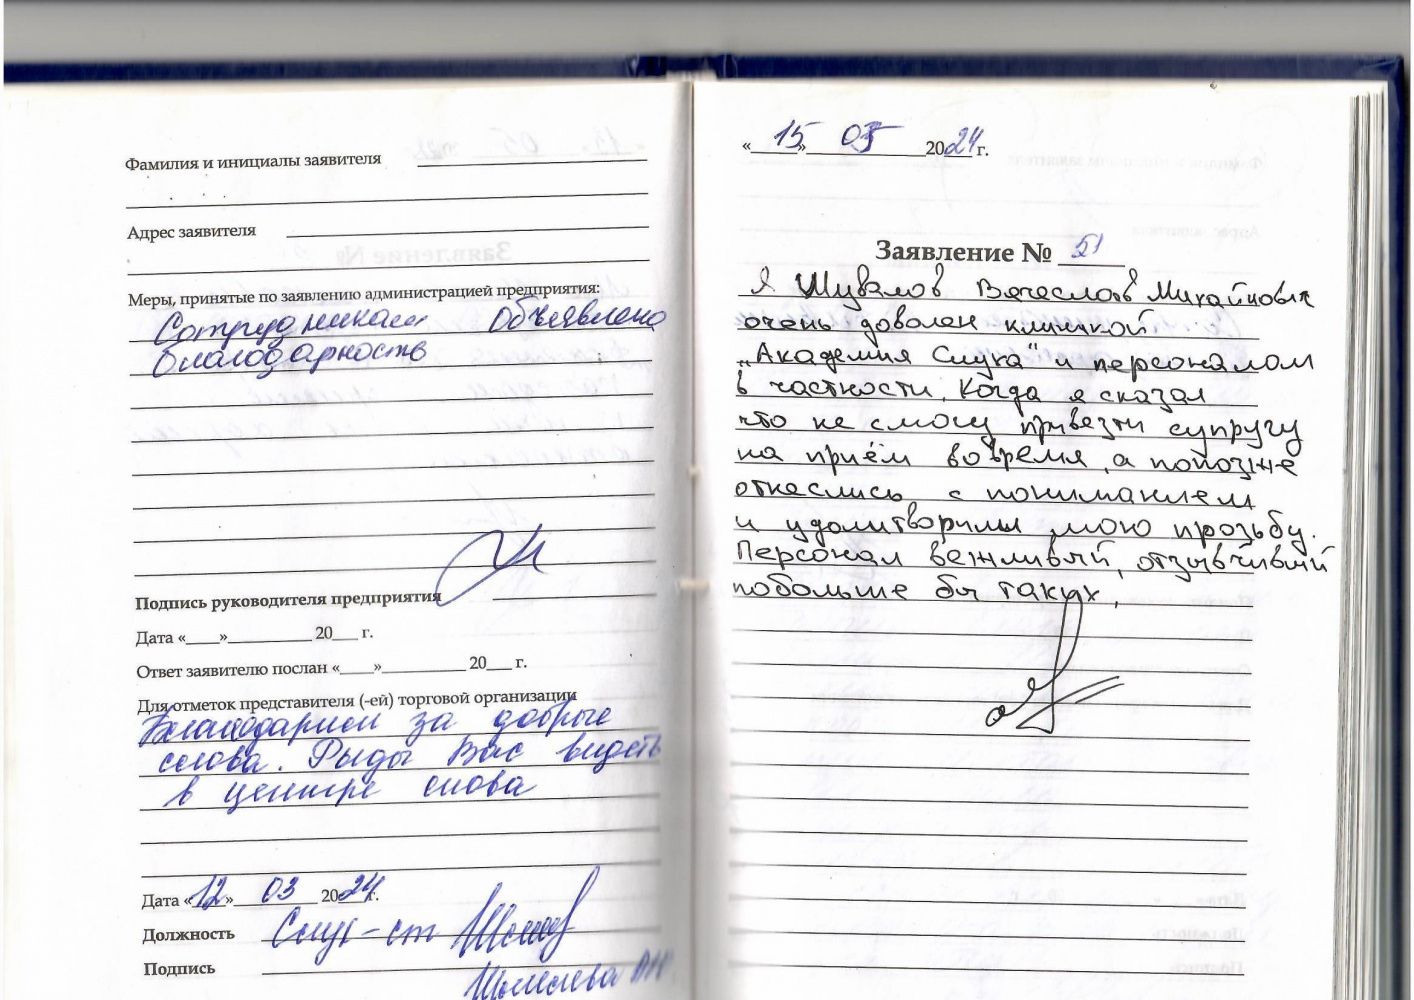 Фамилия и инициалы заявителя
Адрес заявителя
Меры, принятые по заявлению администрацией предприятия:
Сотрудникам Объявлена
благодарность
Подпись руководителя предприятия
Дата «____»__________ 20___ г.
Ответ заявителю послан «____»__________ 20___ г.
Для отметок представителя (-ей) торговой организации
Благодарим за добрые
слова. Рыды Вас видеть
в центре снова
Дата «12» 03 2024 г.
Должность
Подпись
«15» 05 2024 г.
Заявление № 51
Я Шувалов Вячеслав Михайлович
очень доволен клиникой
„Академия Слуха" и персоналом
в частности. Когда я сказал
что не смогу привезти супругу
на приём вовремя, а попозже
отнеслись с пониманием
и удолитворили мою прозьбу.
Персонал вежливый, отзывчивый
побольше бы таких,